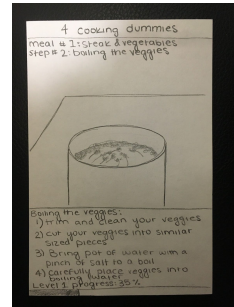 4 cooking dummies
meal # 1: Steak & vegetables
Step # 2: boiling the veggies
Boiling the veggies:
1) trim and clean your veggies
2) cut your veggies into similar
sized pieces
3) Bring pot of water with a
pinch of salt to a boil
4) Carefully place veggies into
boiling water
Level 1 progress: 35%